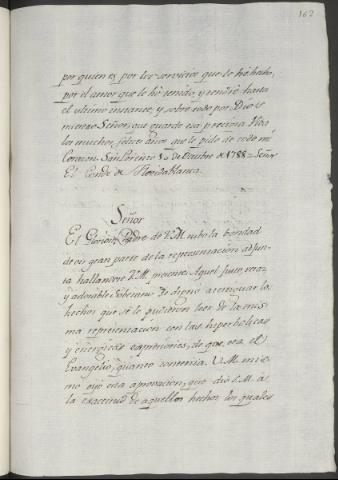 162
por quien es, por los servicios que le hé hecho,
por el amor que le hé tenido, y tendré hasta
el ultimo instante, y sobre todo por Dios
nuestro Señor, que guarde esa preciosa Vida
los muchos, felices años que le pido de todo mi
Corazon. San Lorenzo 10 de Octubre de 1788 = Señor
El Conde de Floridablanca.
Señor
El Glorioso Padre de V.M. tubo la bondad
de oir gran parte de la representacion adjun-
ta hallandose V.M. presente. Aquel justo, veraz
y adorable Soberano se dignó atestiguar los
hechos que se le pudieron leer de la mis-
ma representacion con las hiperbolicas
y energicas expresiones, de que era el
Evangelio, quanto contenia. V.M. mis-
mo oyó esta aprovacion, que dió S.M. á
la exactitud de aquellos hechos los quales